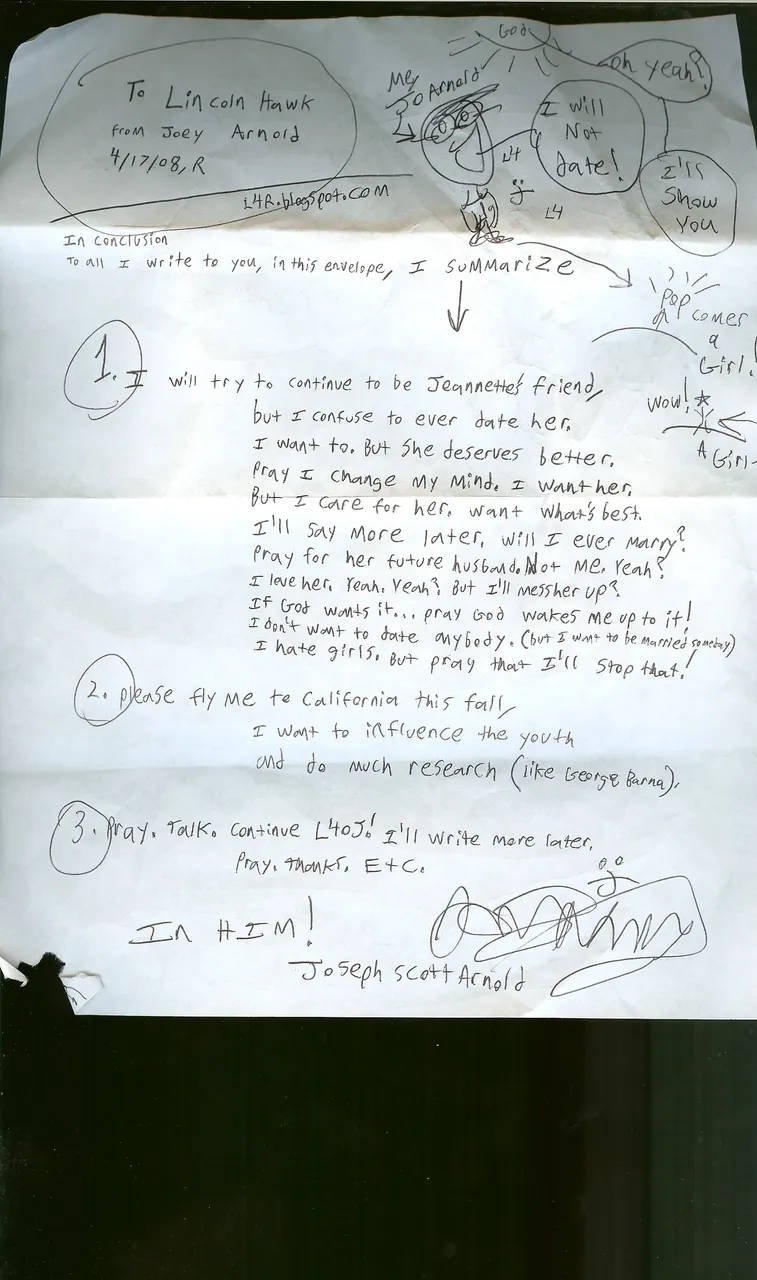 To Lincoln Hawk
from Joey Arnold
4/17/08, R
L4R.blogspot.com
God
oh yeah?
Me,
Jo Arnold
I will
Not
date!
L4
L4
I'll
Show
You
In conclusion
To all I write to you, in this envelope, I summarize
Pop
comes
a
Girl!
Wow!
A Girl
1. I will try to continue to be Jeannette's friend,
but I confuse to ever date her.
I want to. But she deserves better.
Pray I change my mind. I want her.
But I care for her. want what's best.
I'll say more later, will I ever marry?
Pray for her future husband. Not me. Yeah?
I love her. Yeah. Yeah? But I'll mess her up?
If God wants it... pray God wakes me up to it!
I don't want to date anybody. (but I want to be married someday)
I hate girls. But pray that I'll stop that!
2. please fly me to California this fall,
I want to influence the youth
and do much research (like George Barna).
3. Pray. Talk. Continue L4OJ! I'll write more later.
Pray. Thanks. E+C.
In HIM!
Joseph Scott Arnold